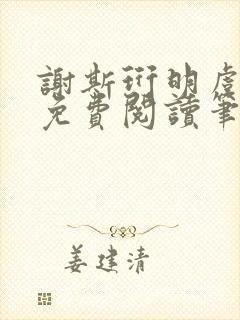 謝斯珩明虞
免費閱讀筆
姜建清